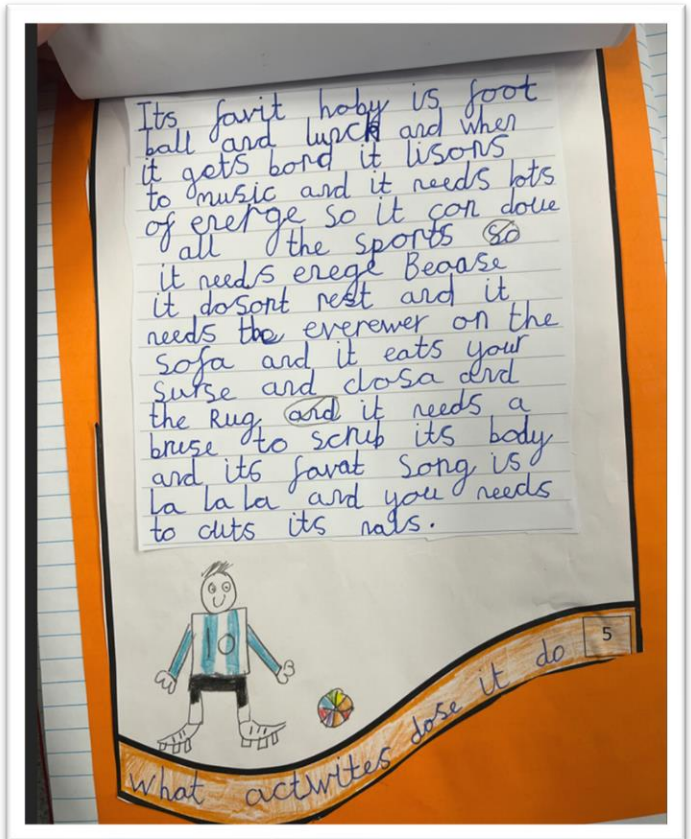 Its favit hoby is foot
ball and lunch and when
it gets bord it lisons
to music and it needs lots
of energe so it can doue
all the sports so
it needs erege Beaase
it dosont rest and it
needs the everewer on the
sofa and it eats your
surse and closa and
the Rug and it needs a
bruse to scrub its body
and its favat song is
La La La and you needs
to cuts its nals.
10
5
what activites dose it do